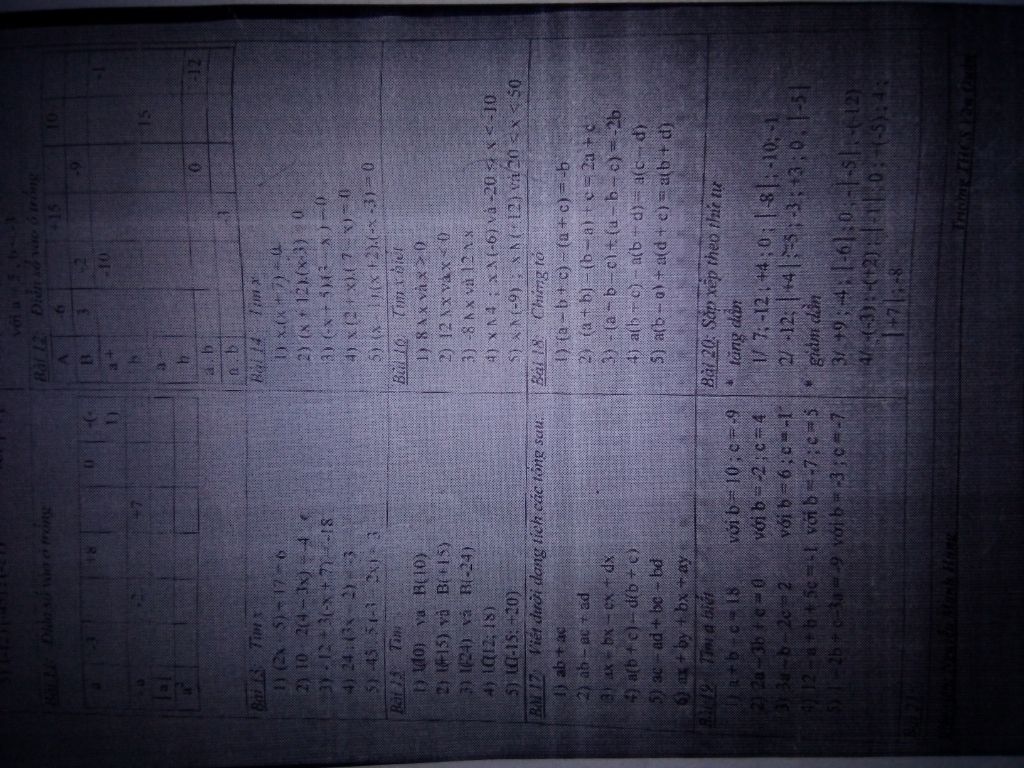 với a
Bài 12 Điền số vào ô trống
A 6 +15 10
B 3 -2 -9 -1
a + b -10 15
a - b 0 -12
a . b
a : b -3
Điền số vào ô trống
a -3 +8 0 -(-1)
- a -2 +7
|a|
a²
Bài 13 Tìm x
2) 10 2(4 – 3x) = -4
3) - 12 + 3(-x + 7) = -18
4) 24 : (3x – 2) = -3
5) -45 : 5.(-3 – 2x) = 3
Bài 14 Tìm x
1) x.(x + 7) = 0
2) (x + 12).(x-3) = 0
3) (-x + 5).(3 – x ) = 0
4) x.(2 + x).( 7 – x) = 0
5) (x - 1).(x + 2).(-x -3) = 0
Bài 15 Tìm
1) Ư(10) và B(10)
2) Ư(+15) và B(+15)
3) Ư(-24) và B(-24)
4) ƯC(12; 18)
5) ƯC(-15; +20)
Bài 16 Tìm x biết
1) 8 x và x > 0
2) 12 x và x < 0
3) -8 x và 12 x
4) x 4 ; x (-6) và -20 < x < -10
5) x (-9) ; x (+12) và 20 < x < 50
Bài 17 Viết dưới dạng tích các tổng sau:
1) ab + ac
2) ab – ac + ad
3) ax – bx – cx + dx
4) a(b + c) – d(b + c)
5) ac – ad + bc – bd
6) ax + by + bx + ay
Bài 18 Chứng tỏ
1) (a – b + c) – (a + c) = -b
2) (a + b) – (b – a) + c = 2a + c
3) - (a + b – c) + (a – b – c) = -2b
4) a(b + c) – a(b + d) = a(c – d)
5) a(b – c) + a(d + c) = a(b + d)
Bài 19 Tìm a biết
1) a + b – c = 18 với b = 10 ; c = -9
2) 2a – 3b + c = 0 với b = -2 ; c = 4
3) 3a – b – 2c = 2 với b = 6 ; c = -1
4) 12 – a + b + 5c = -1 với b = -7 ; c = 5
5) 1 – 2b + c – 3a = -9 với b = -3 ; c = -7
Bài 20: Sắp xếp theo thứ tự
* tăng dần
1/ 7; -12 ; +4 ; 0 ; |-8| ; -10; -1
2/ -12; |+4| ; -5 ; -3 ; +3 ; 0 ; |-5|
* giảm dần
3/ +9 ; -4 ; |-6| ; 0 ; -|-5| ; -(-12)
4/ -(-3) ; -(+2) ; |-1| ; 0 ; +(-5) ; 4 ;
|+7| ; -8
Trường THCS